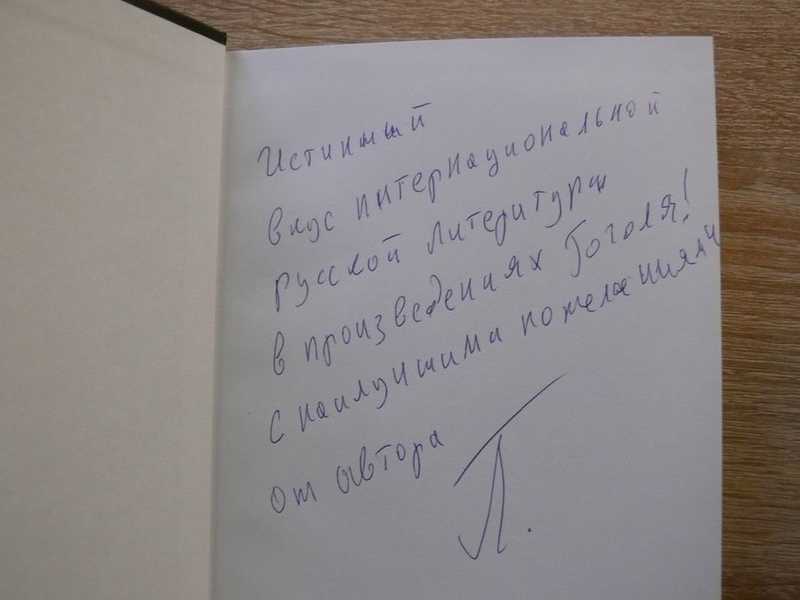 Истинный
вкус интернациональной
русской литературы
в произведениях Гоголя!
с наилучшими пожеланиями
от автора